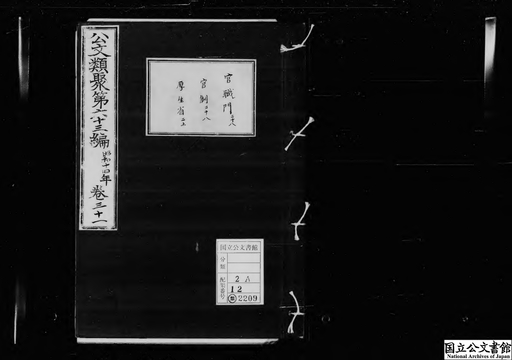 公文類聚第六十三編 昭和十四年 巻三十一
官職門二十八
官制二十八
厚生省
国立公文書館
分類
配架番号
2 A
12
類 2209
国立公文書館
National Archives of Japan